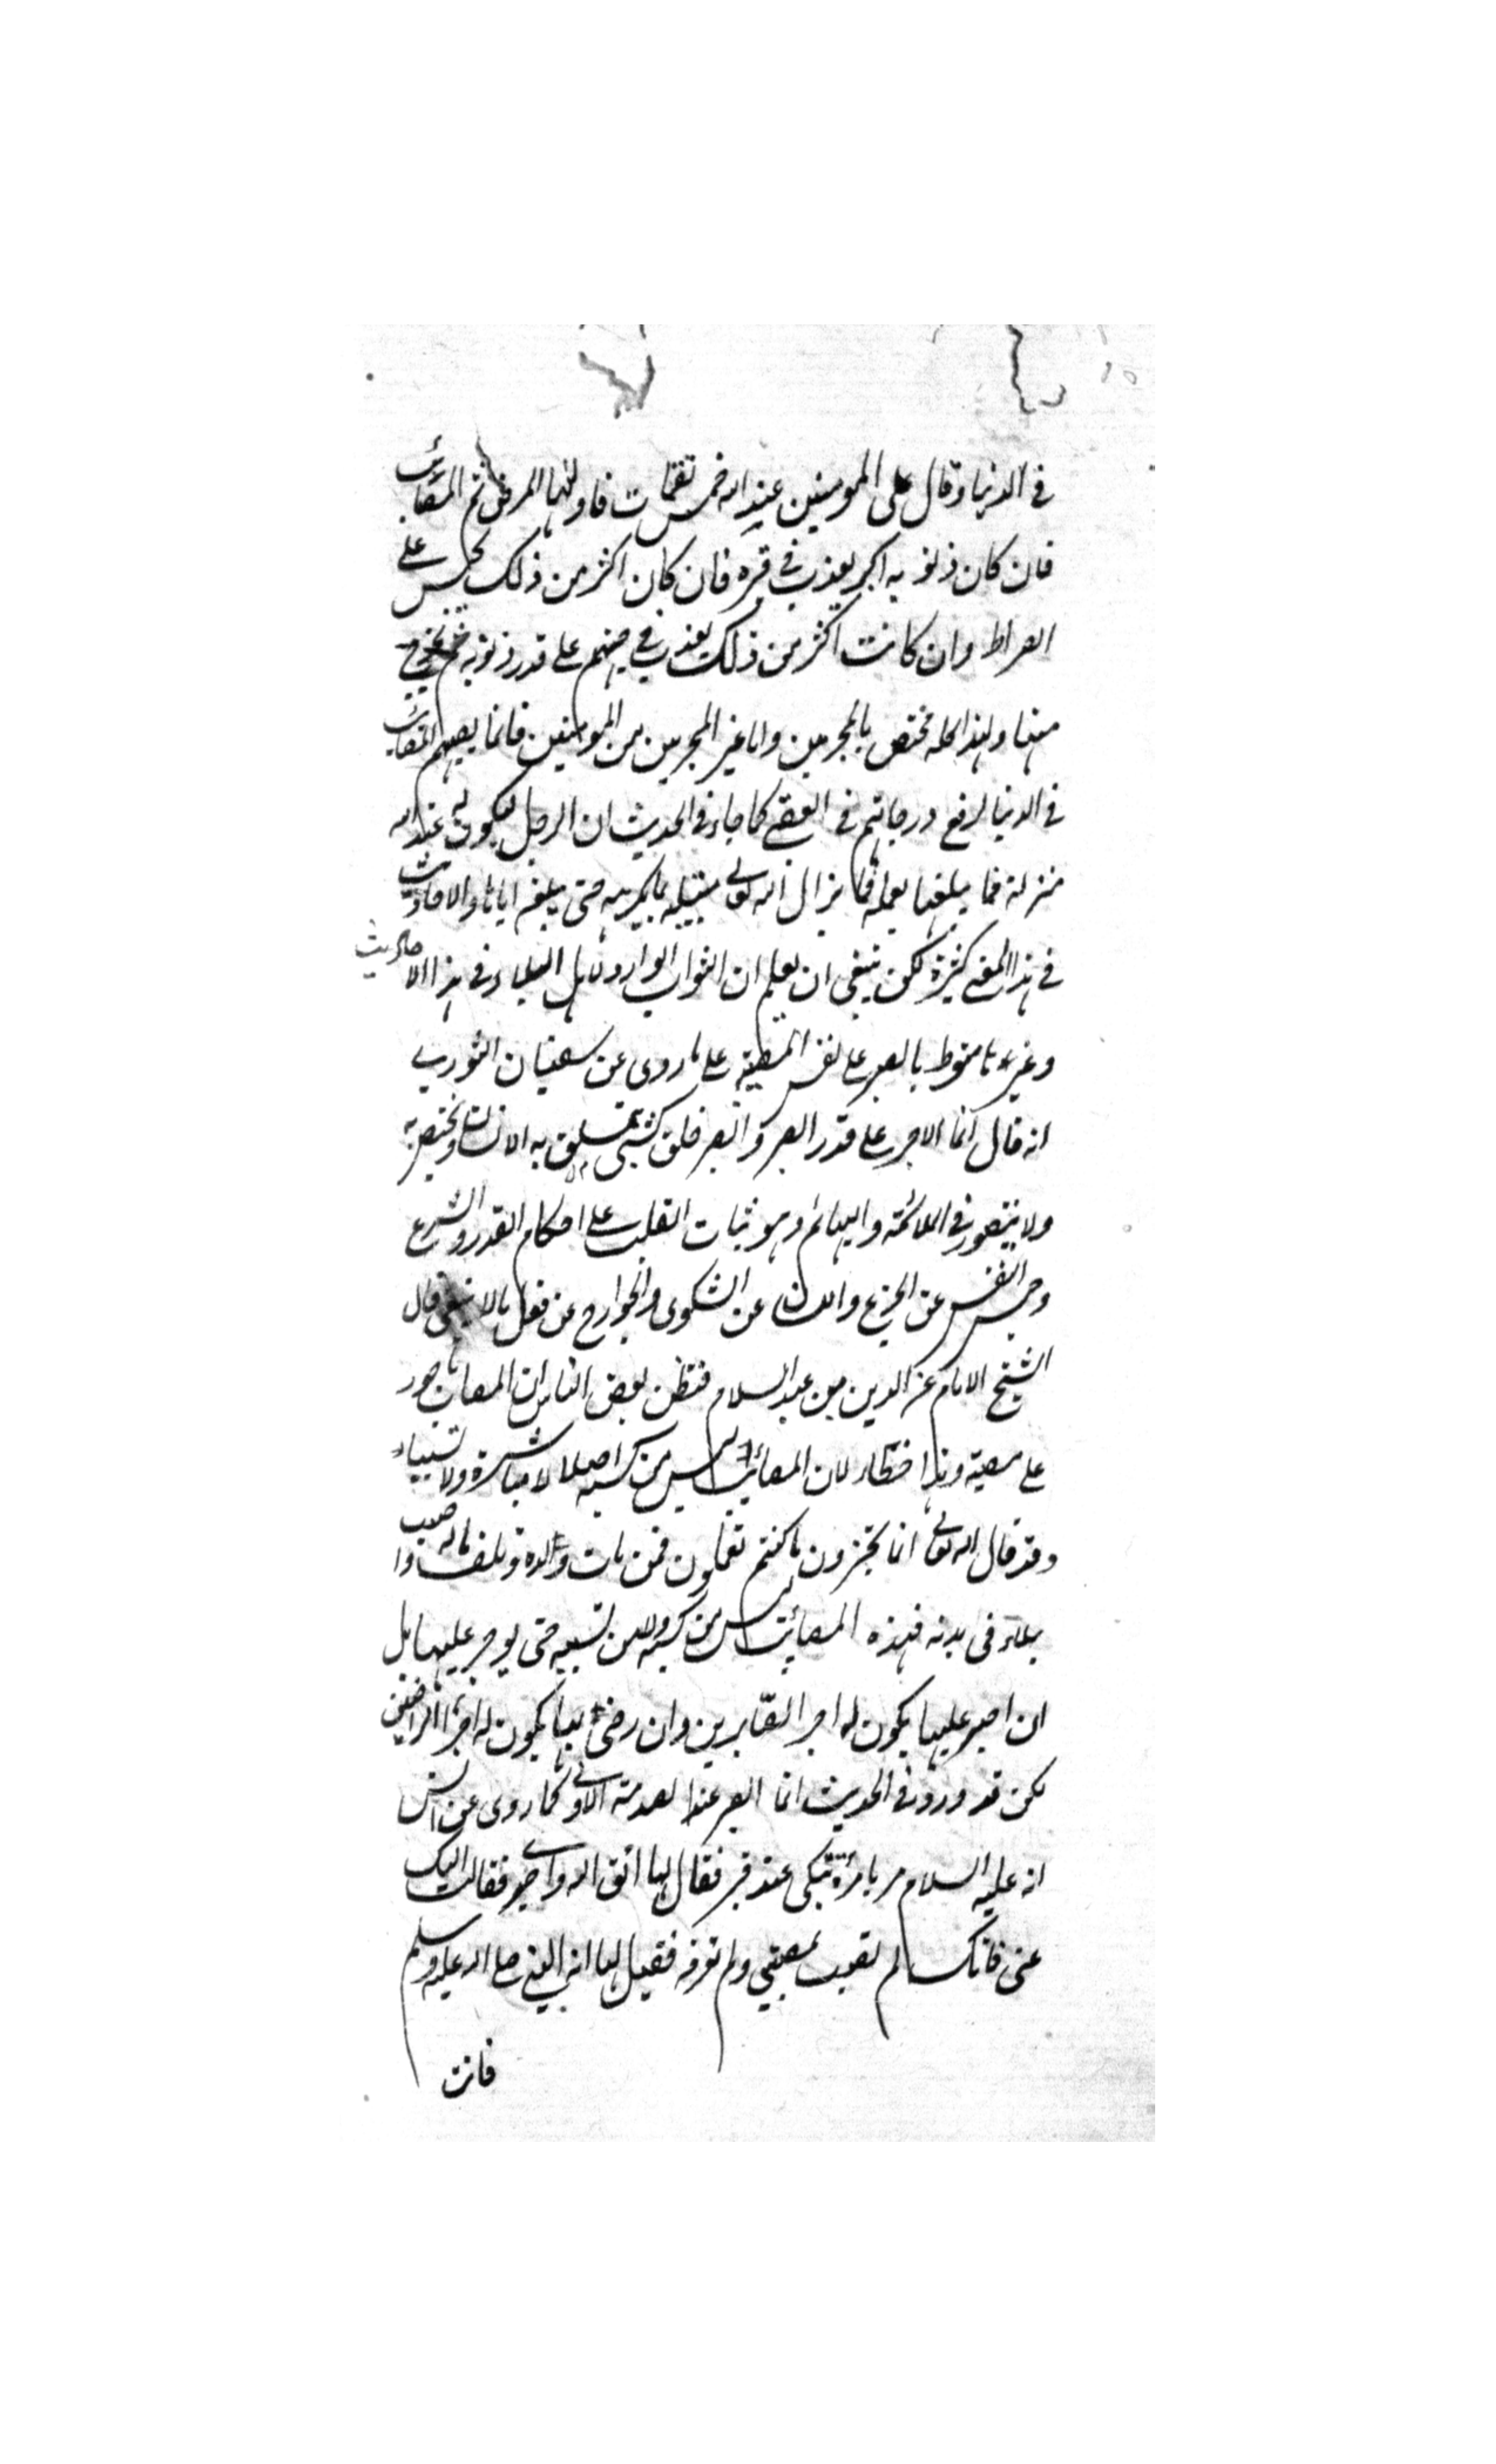 في الدنيا وقال على المومنين عند الله خمس نقمات فاولها المرض ثم المصائب
فان كان ذنوبه اكبر يعذب في قبره فان كان اكثر من ذلك يحبس على
الصراط وان كانت اكثر من ذلك يعذب في جهنم على قدر ذنوبه ثم يخرج
منها وهذا كله مختص بالمجرمين واما غير المجرمين من المومنين فانما يصيبهم المصائب
في الدنيا لرفع درجاتهم في العقبى كما جاء في الحديث ان الرجل ليكون له عند الله
منزلة فما يبلغها بعمله فما يزال الله تعالى يبتليه بما يكرهه حتى يبلغه اياها والاحاديث
في هذا المعنى كثيرة لكن ينبغي ان يعلم ان الثواب الوارد لاهل البلاء في هذا الاحاديث
وغيره منوط بالصبر على نفس المصيبة على ما روى عن سفيان الثوري
انه قال انما الاجر على قدر الصبر والصبر خلق كسبي يتخلق به الانسان ويختص به
ولا يتصور في الملائكة والبهائم وهو ثبات القلب على احكام القدر والشرع
وحبس النفس عن الجزع واللسان عن الشكوى والجوارح عن فعل ما لا ينبغي قال
الشيخ الامام عز الدين بن عبد السلام فتظن بعض الناس ان المصاب ماجور
على مصيبة وهذا خطاء لان المصائب ليس من كسبه اصلا لا مباشرة ولا تسبباء
وقد قال الله تعالى انما تجزون ما كنتم تعملون فمن مات ولده وتلف ماله واصيب
ببلاء في بدنه فهذه المصائب ليس من كسبه ولا من تسببه حتى يوجر عليها بل
ان اصبر عليها يكون له اجر الصابرين وان رضى بها يكون له اجر الراضين
لكن قد ورد في الحديث انما الصبر عند الصدمة الاولى كما روى عن انس
انه عليه السلام مر بامرأة تبكي عند قبر فقال لها اتق الله واصبر فقالت اليك
عني فانك لم تصب بمصيبتي ولم تعرفه فقيل لها انه النبي صلى الله عليه وسلم
فاتت